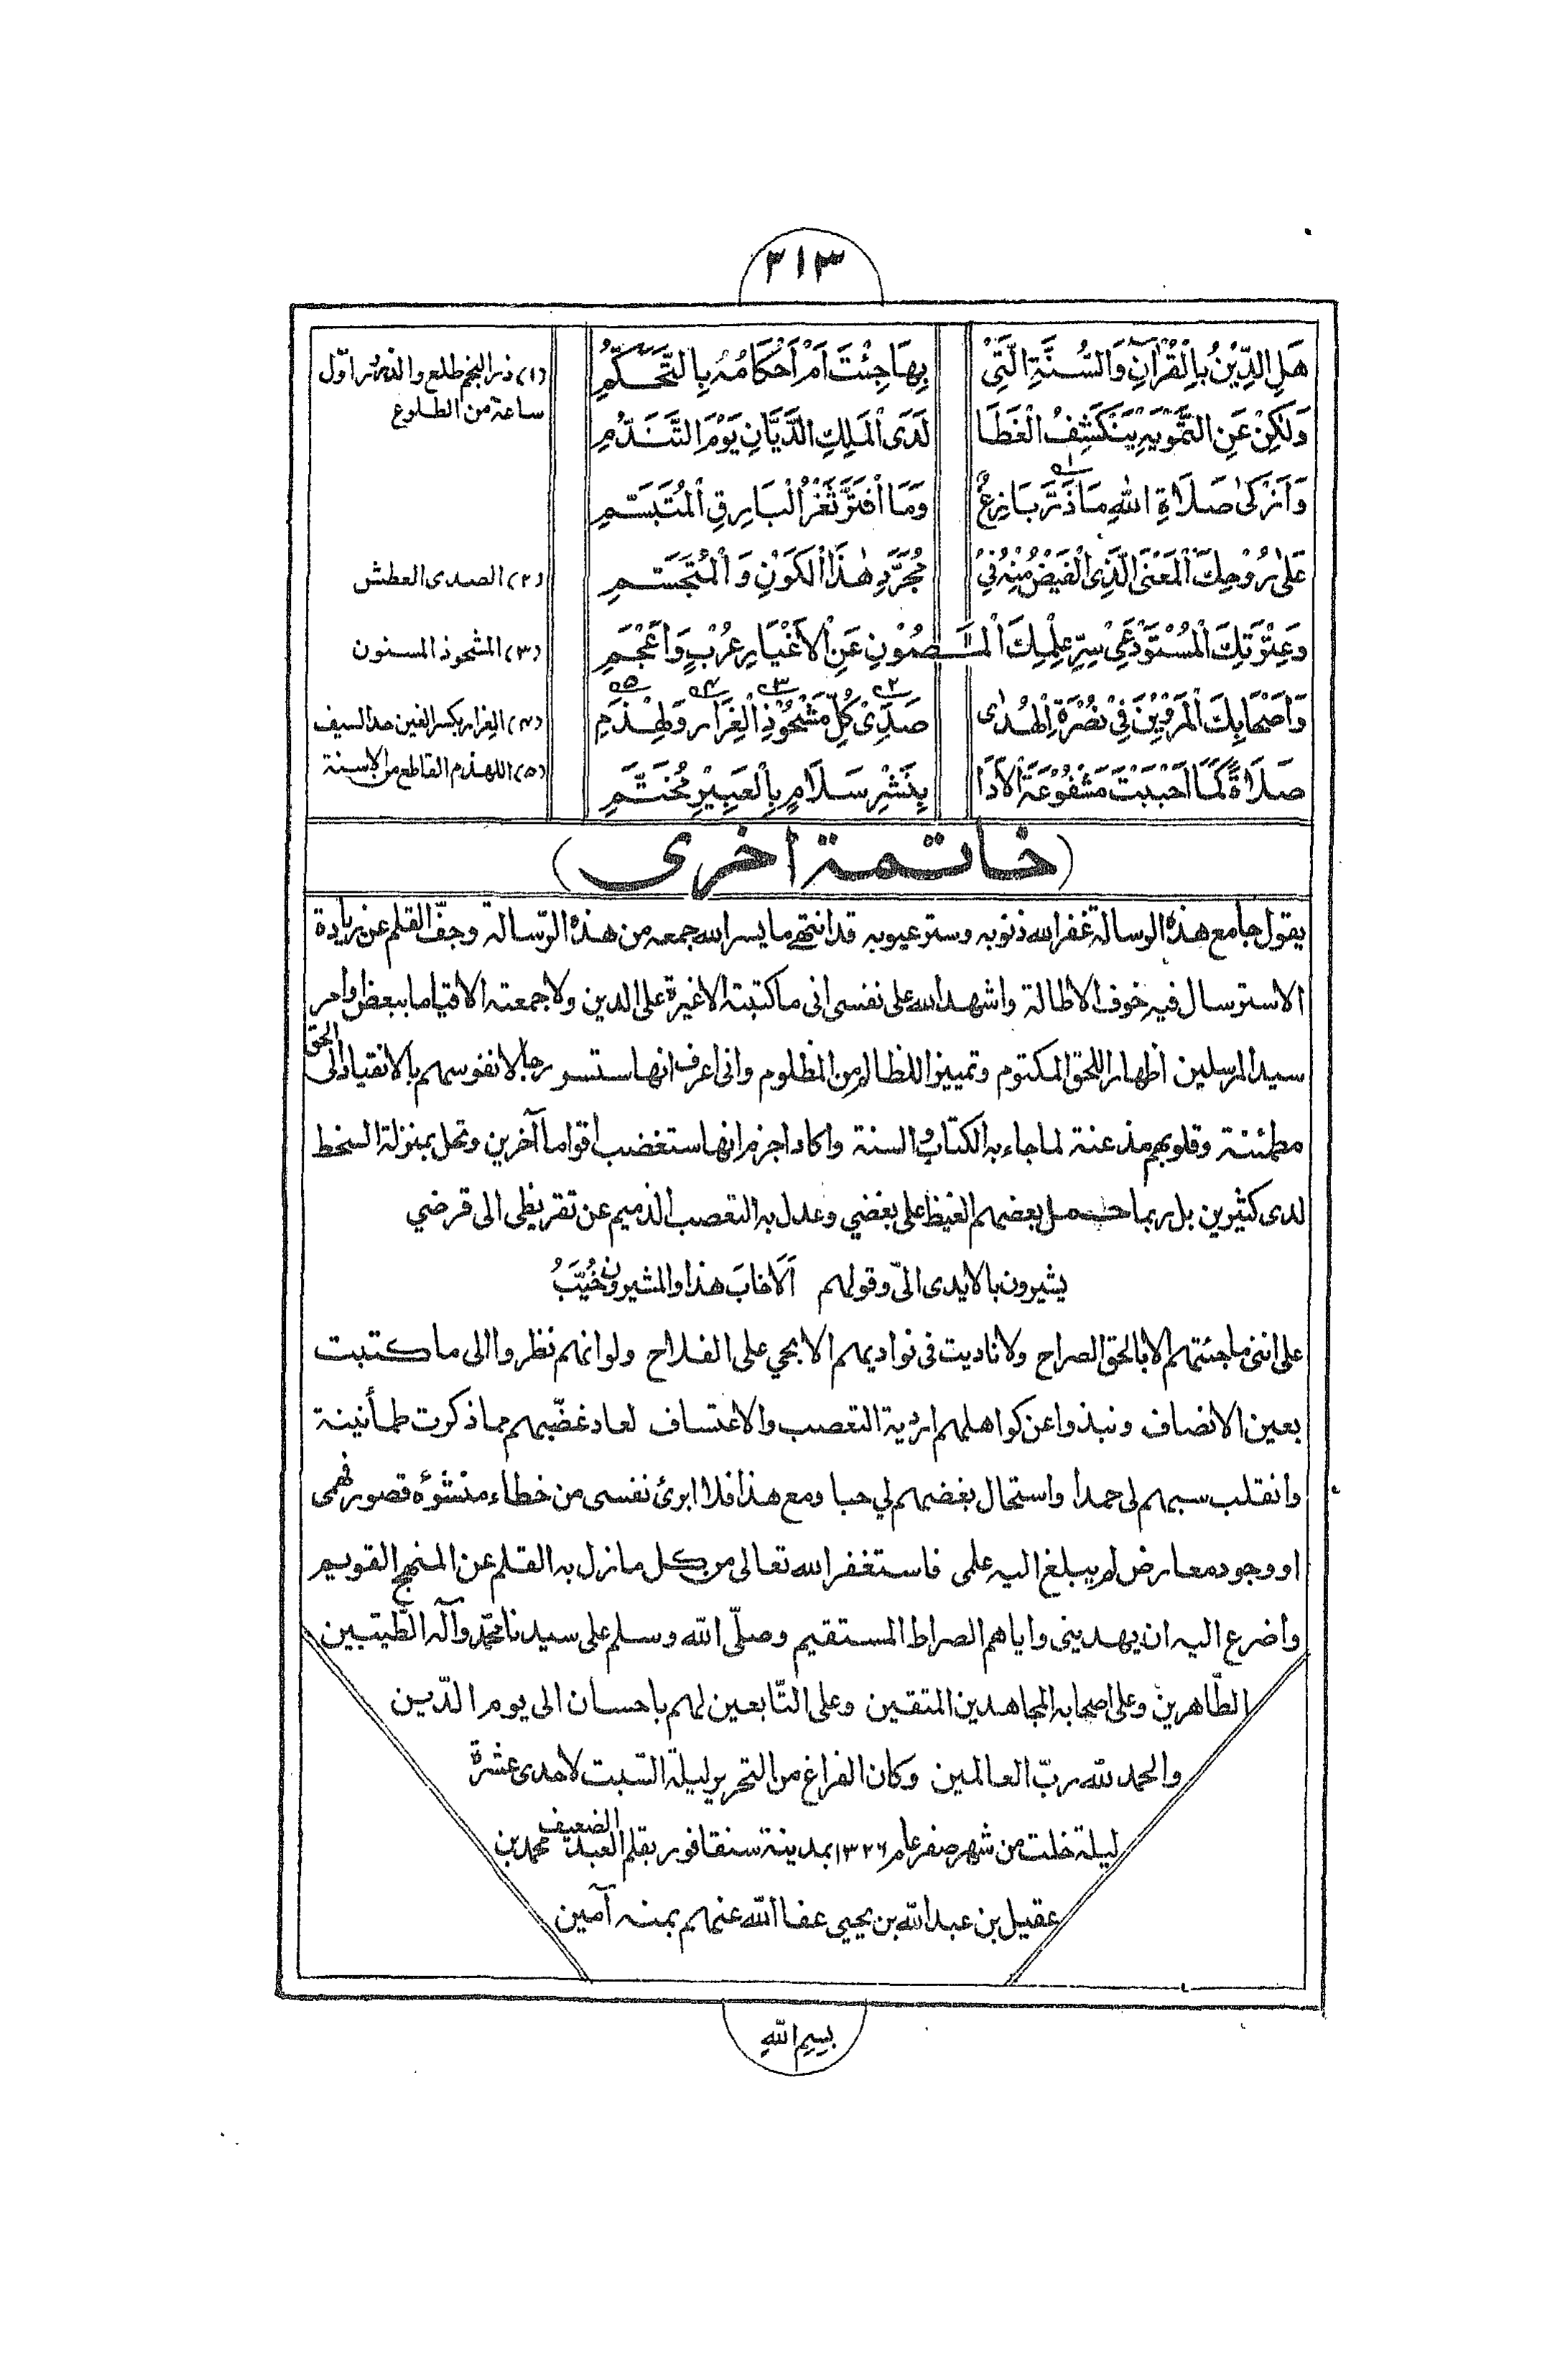 ٣١٣
هَلِ الدِّيْنُ بِالْقُرْاٰنِ وَالسُّنَّةِ الَّتِيْ بِهَا جِئْتَ اَمْ اَحْكَامُهُ بِالتَّحَكُّمِ
وَلَكِنْ عَنِ التَّمْوِيْهِ يَنْكَشِفُ الْغَطَا لَدَى الْمَلِكِ الدَّيَّانِ يَوْمَ التَّنَدُّمِ
وَاَزْكٰى صَلَاةِ اللهِ مَا ذَرَّ بَازِغٌ وَمَا افْتَرَّ ثَغْرُ الْبَارِقِ الْمُتَبَسِّمِ
عَلٰى رُوْحِكَ الْمَعْنَى الَّذِى الْفَيْضُ مِنْهُ فِيْ مُجَرَّدِ هٰذَا الْكَوْنِ وَالْمُتَجَسِّمِ
وَعِتْرَتِكَ الْمُسْتَوْدَعِيْ سِرِّ عِلْمِكَ الْمَصُوْنِ عَنِ الْاَغْيَارِ عُرْبٍ وَاَعْجَمِ
وَاَصْحَابِكَ الْمَرْوِيْنَ فِيْ نُصْرَةِ الْهُدٰى صَدِىْ كُلِّ مَشْحُوْذِ الْغِرَارِ وَلَهْذَمِ
صَلَاةً كَمَا اَحْبَبْتَ مَشْفُوْعَةَ الْاَدَا بِنَشْرِ سَلَامٍ بِالْعَبِيْرِ مُخَتَّمِ
(١) ذر النجم طلع والذرور اوّل
ساعة من الطلوع
(٢) الصدى العطش
(٣) المشحوذ المسنون
(٤) الغرار بكسر الغين حد السيف
(٥) اللهذم القاطع من الاسنة
(خاتمة اخرى)
يقول جامع هذه الرسالة غفر الله ذنوبه وستر عيوبه قد انتهى ما يسر الله جمعه من هذه الرّسالة وجفّ القلم عن زيادة
الاسترسال فيه خوف الاطالة واشهد الله على نفسى انى ما كتبته الا غيرة على الدين ولا جمعته الا قياما ببعض اوامر
سيد المرسلين اظهارا للحق المكتوم وتمييزا للظالم من المظلوم وانى اعرف انها ستسر رجالا نفوسهم بالانقياد الى الحق
مطمئنة وقلوبهم مذعنة لما جاء به الكتاب والسنة واكاد اجزم انها ستغضب اقواما آخرين وتحل بمنزلة السخط
لدى كثيرين بل ربما حمل بعضهم الغيظ على بغضي وعدل به التعصب الذميم عن تقريظى الى قرضي
يشيرون بالايدى الىّ وقولهم اَلَا خابَ هذا والمشيرون خُيَّبُ
على اننى ما جئتهم الا بالحق الصراح ولا ناديت فى نواديهم الا بحي على الفلاح ولو انهم نظروا الى ما كتبت
بعين الانصاف ونبذوا عن كواهلهم اردية التعصب والاعتساف لعاد غضبهم مما ذكرت طمأنينة
وانقلب سبهم لى حمدا واستحال بغضهم لي حبا ومع هذا فلا ابرئ نفسى من خطاء منشؤه قصور فهمى
او وجود معارض لم يبلغ اليه علمى فاستغفر الله تعالى من كل ما زل به القلم عن المنهج القويم
واضرع اليه ان يهدينى واياهم الصراط المستقيم وصلّى الله وسلم على سيدنا محمّد وآله الطّيبين
الطّاهرين وعلى اصحابه المجاهدين المتقين وعلى التّابعين لهم باحسان الى يوم الدّين
والحمد لله ربّ العالمين وكان الفراغ من التحرير ليلة السّبت لاحدى عشرة
ليلة خلت من شهر صفر عام ١٣٢٦ بمدينة سنقافور بقلم العبد الضعيف محمد بن
عقيل بن عبد الله بن يحيى عفا الله عنهم بمنه آمين
بسم الله